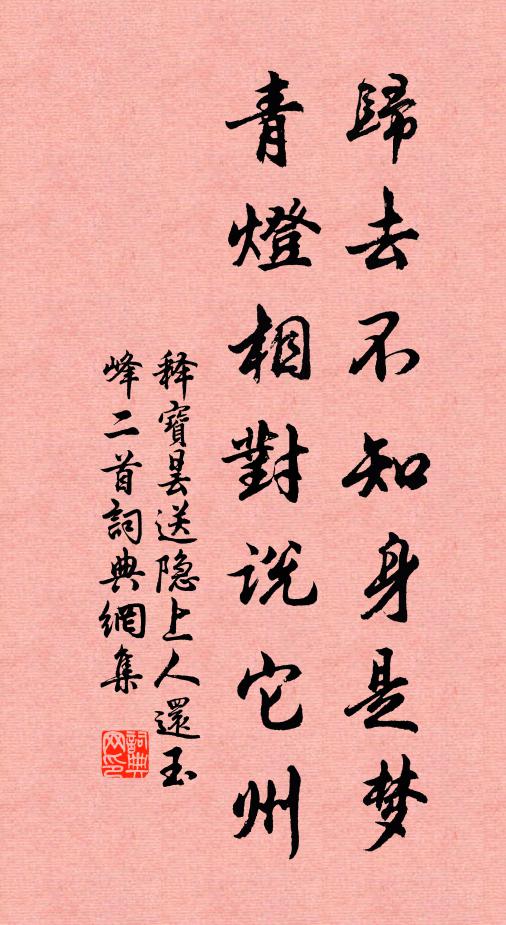 歸去不知身是梦
青燈相對说它州
释寶曇送隐上人還玉
峰二首詞典網集
詞典
网印